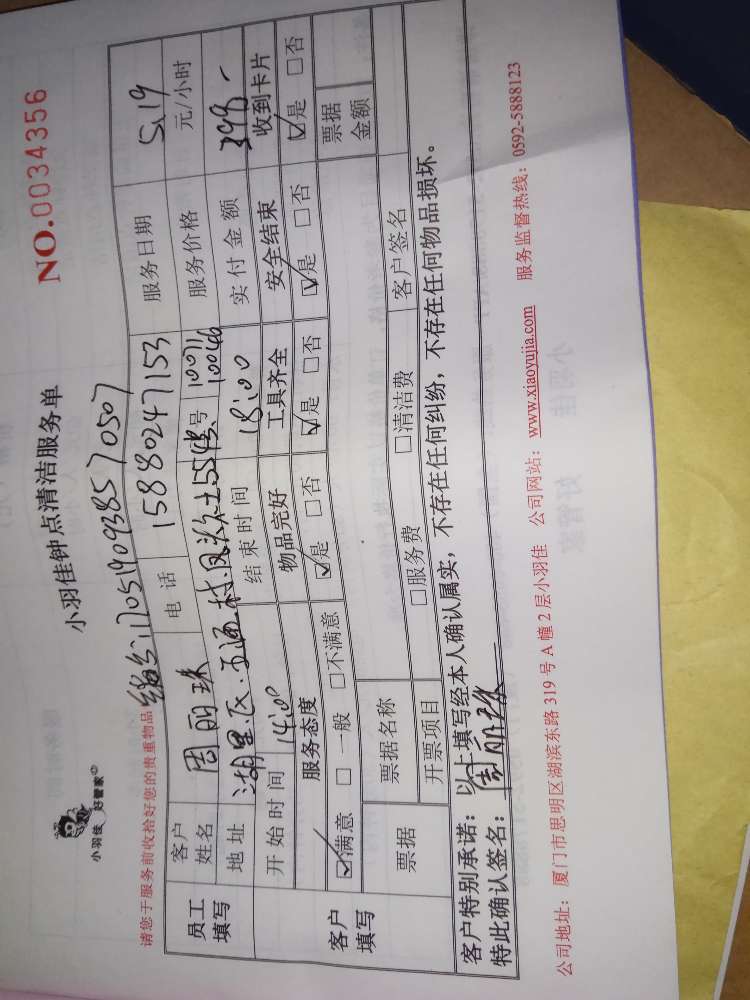 小羽佳 好管家
小羽佳钟点清洁服务单
NO.0034356
请您于服务前收拾好您的贵重物品
1705190938570507
员工填写
客户姓名 周丽珠 电话 15880247153 服务日期 5.19
地址 湖里区 号 10071 10046 服务价格 元/小时
开始时间 14:00 结束时间 18:00 实付金额 398-
客户填写
服务态度 物品完好 工具齐全 安全结束 收到卡片
☑满意 □一般 □不满意 ☑是 □否 ☑是 □否 ☑是 □否 ☑是 □否
票据 票据名称 票据金额
开票项目 □服务费 □清洁费 客户签名
客户特别承诺:以上填写经本人确认属实,不存在任何纠纷,不存在任何物品损坏。
特此确认签名:周丽珠
公司地址:厦门市思明区湖滨东路319号A幢2层小羽佳 公司网站:www.xiaoyujia.com 服务监督热线:0592-5888123